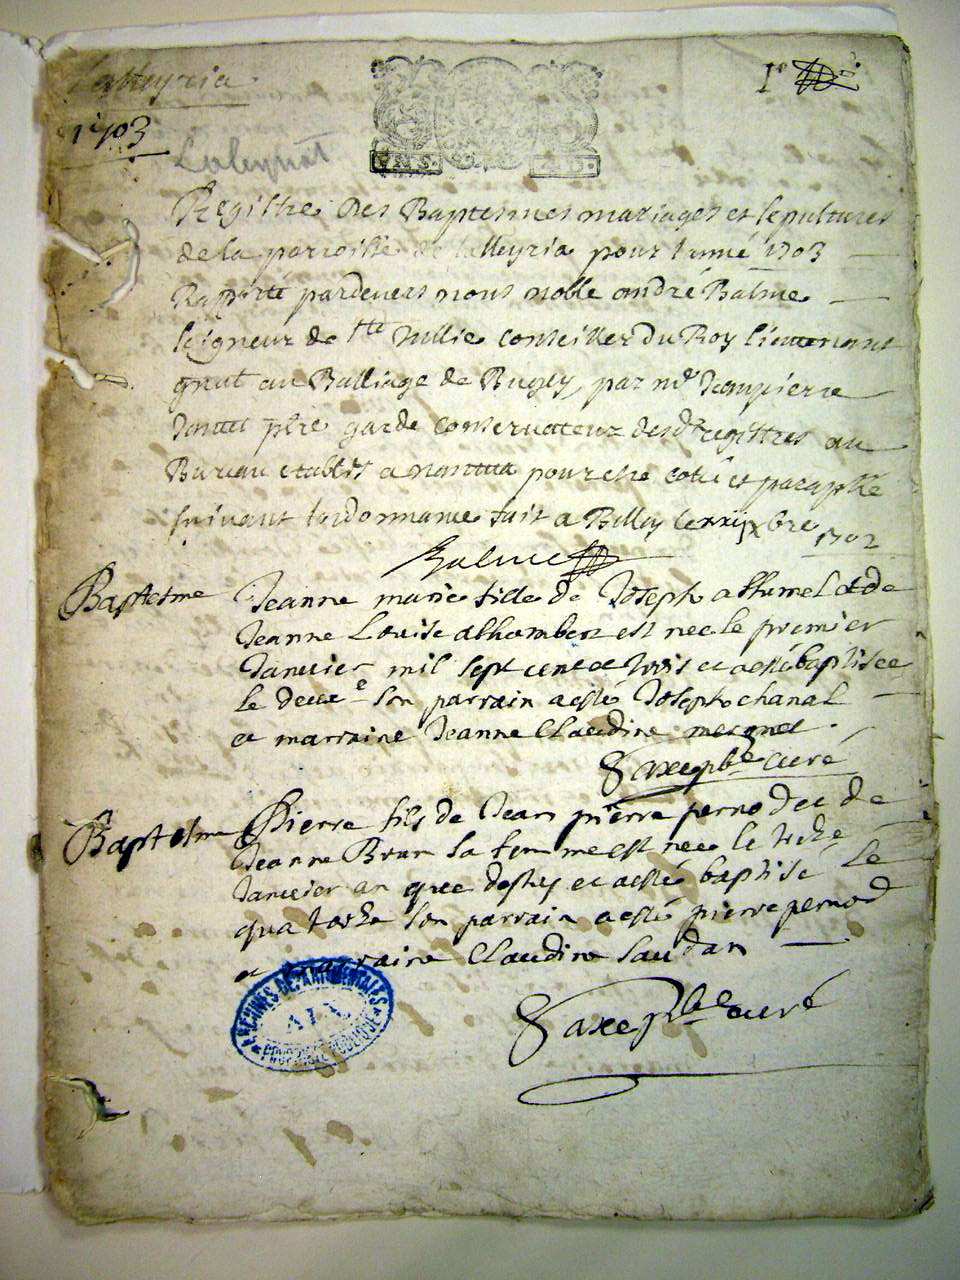 Lalleyria
1er
1703
Laleyriat
Registre des Baptesmes mariages et sepultures
de la parroisse de lalleyria pour lanné 1703
Raporté pardevers nous noble andré Balme
seigneur de Ste Jullie conseiller du Roy lieutenant
gnral au Balliage de Bugey, par mr Jeanpierre
ptre garde conservateur desdts registres au
Bureau establis a nantua pour estre cotté et paraphé
suivant lordonnance fait a Belley le xxij xbre 1702
Balme
Baptesme
Jeanne marie fille de Joseph alhumel et de
Jeanne Louise alhumbert est nee le premier
Janvier mil sept cent et trois et a esté baptisee
le deuxe son parrain a esté Joseph chanal
et marraine Jeanne Claudine
Saxe pbre curé
Baptesme
Pierre fils de Jean pierre pernod et de
Jeanne Brun sa femme est nee le treize
Janvier an que dessus et a esté baptisé le
quatorze son parrain a esté pierre pernod
et marraine Claudine saudan
Saxe pbre curé
ARCHIVES DEPARTEMENTALES
AIN
PROPRIÉTÉ PUBLIQUE